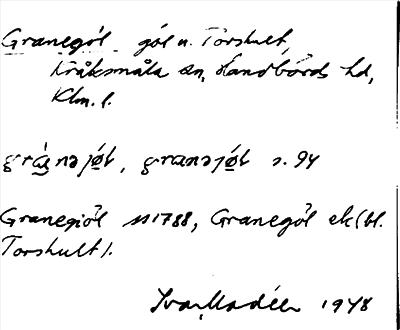 Granegöl göl u. Torshult,
Kråksmåla sn, Handbörds hd,
Klm. l.
s. 94
Granegiöl 1788, Granegöl ek (bl.
Torshult).
Ivar Modéer 1948